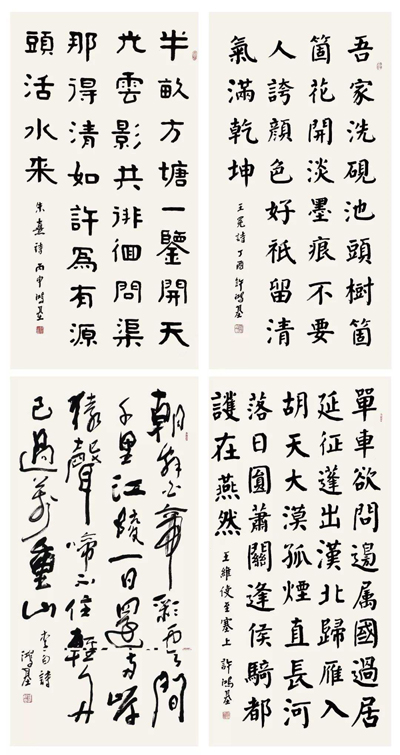 吾家洗硯池頭樹箇
箇花開淡墨痕不要
人誇顏色好祇留清
氣滿乾坤
王冕詩丁酉許鴻基
半畝方塘一鑒開天
光雲影共徘徊問渠
那得清如許為有源
頭活水来
朱熹詩丙申鴻基
單車欲問邊属國過居
延征蓬出漢北歸雁入
胡天大漠孤煙直長河
落日圓蕭關逢侯騎都
護在燕然
王維使至塞上許鴻基
朝辭白帝彩雲間
千里江陵一日還兩岸
猿聲啼不住輕舟
已過萬重山
李白詩
鴻基